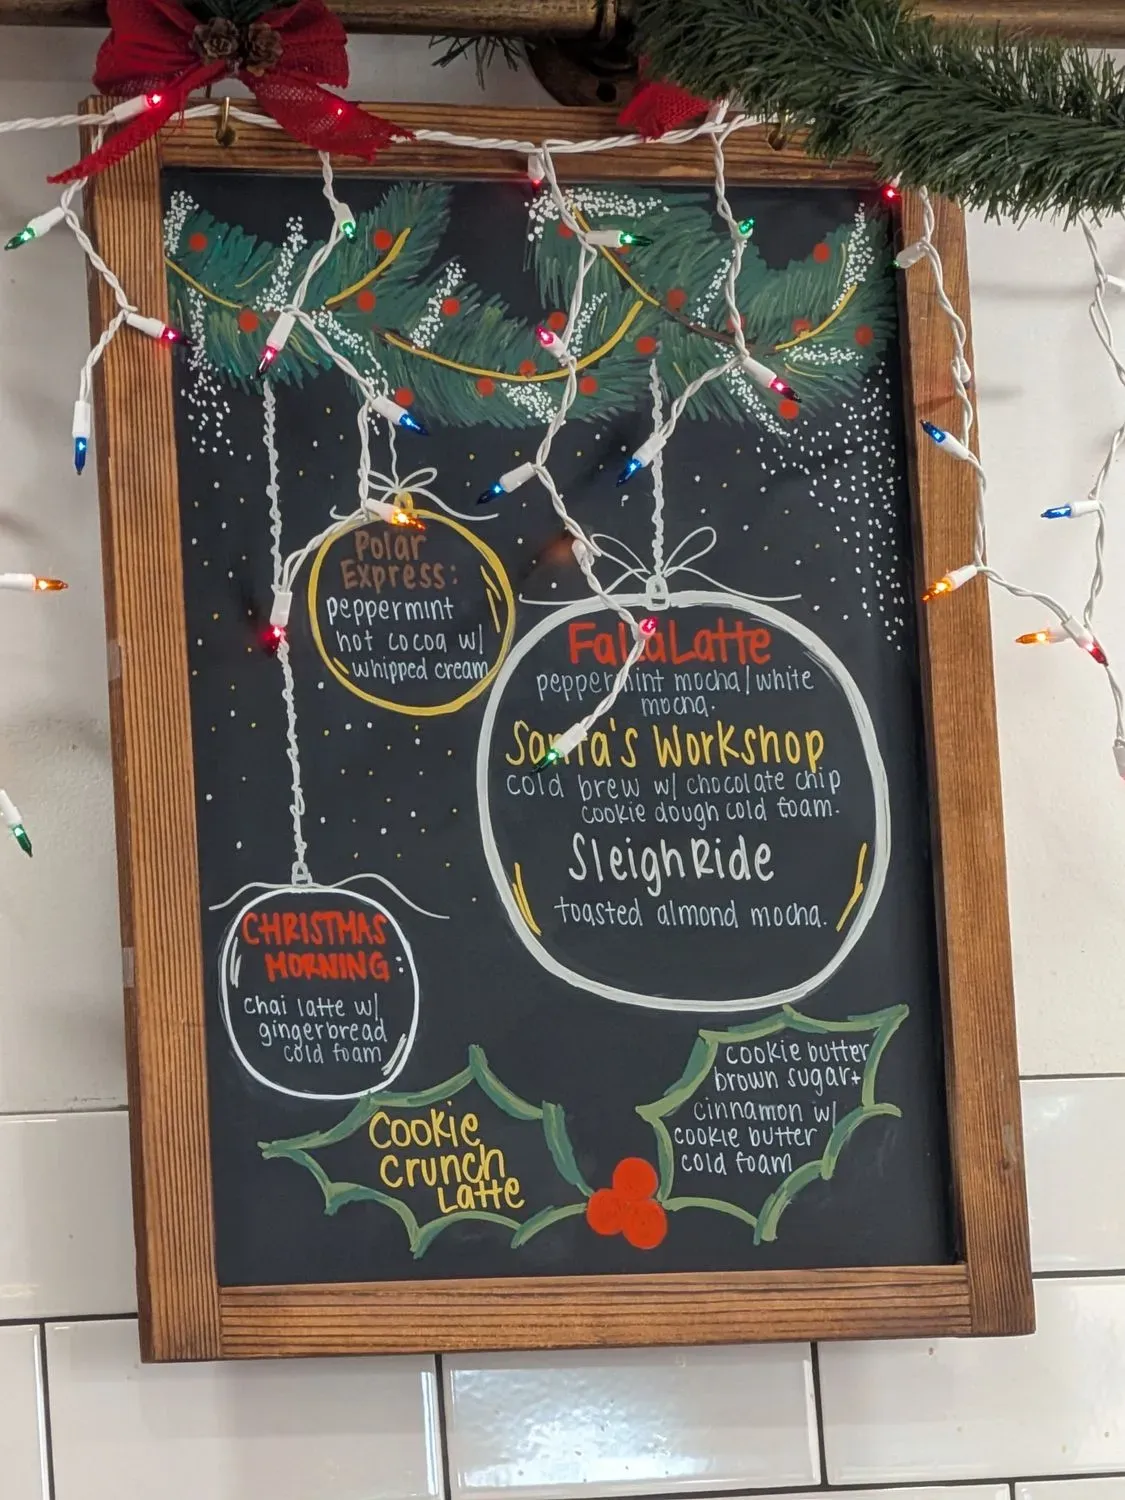 Polar
Express:
peppermint
hot cocoa w/
whipped cream
FaLaLatte
peppermint mocha/white
mocha.
Santa's Workshop
cold brew w/ chocolate chip
cookie dough cold foam.
Sleigh Ride
toasted almond mocha.
CHRISTMAS
MORNING:
chai latte w/
gingerbread
cold foam
Cookie
Crunch
Latte
cookie butter
brown sugar+
cinnamon w/
cookie butter
cold foam